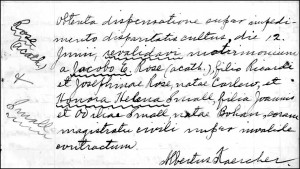 Rose
(acath.)
&
Small
Obtenta dispensatione super impedi-
mento disparitatis cultus, die 12.
Junii, revalidavi matrimonium
a Jacobo E. Rose (acath.), filio Ricardi
et Josephinae Rose, natae Carlow, et
Honora Helena Small, filia Joannis
et Odiliae Small, natae Bohan, coram
magistratu civili nuper invalide
contractum.
Albertus Kaercher.